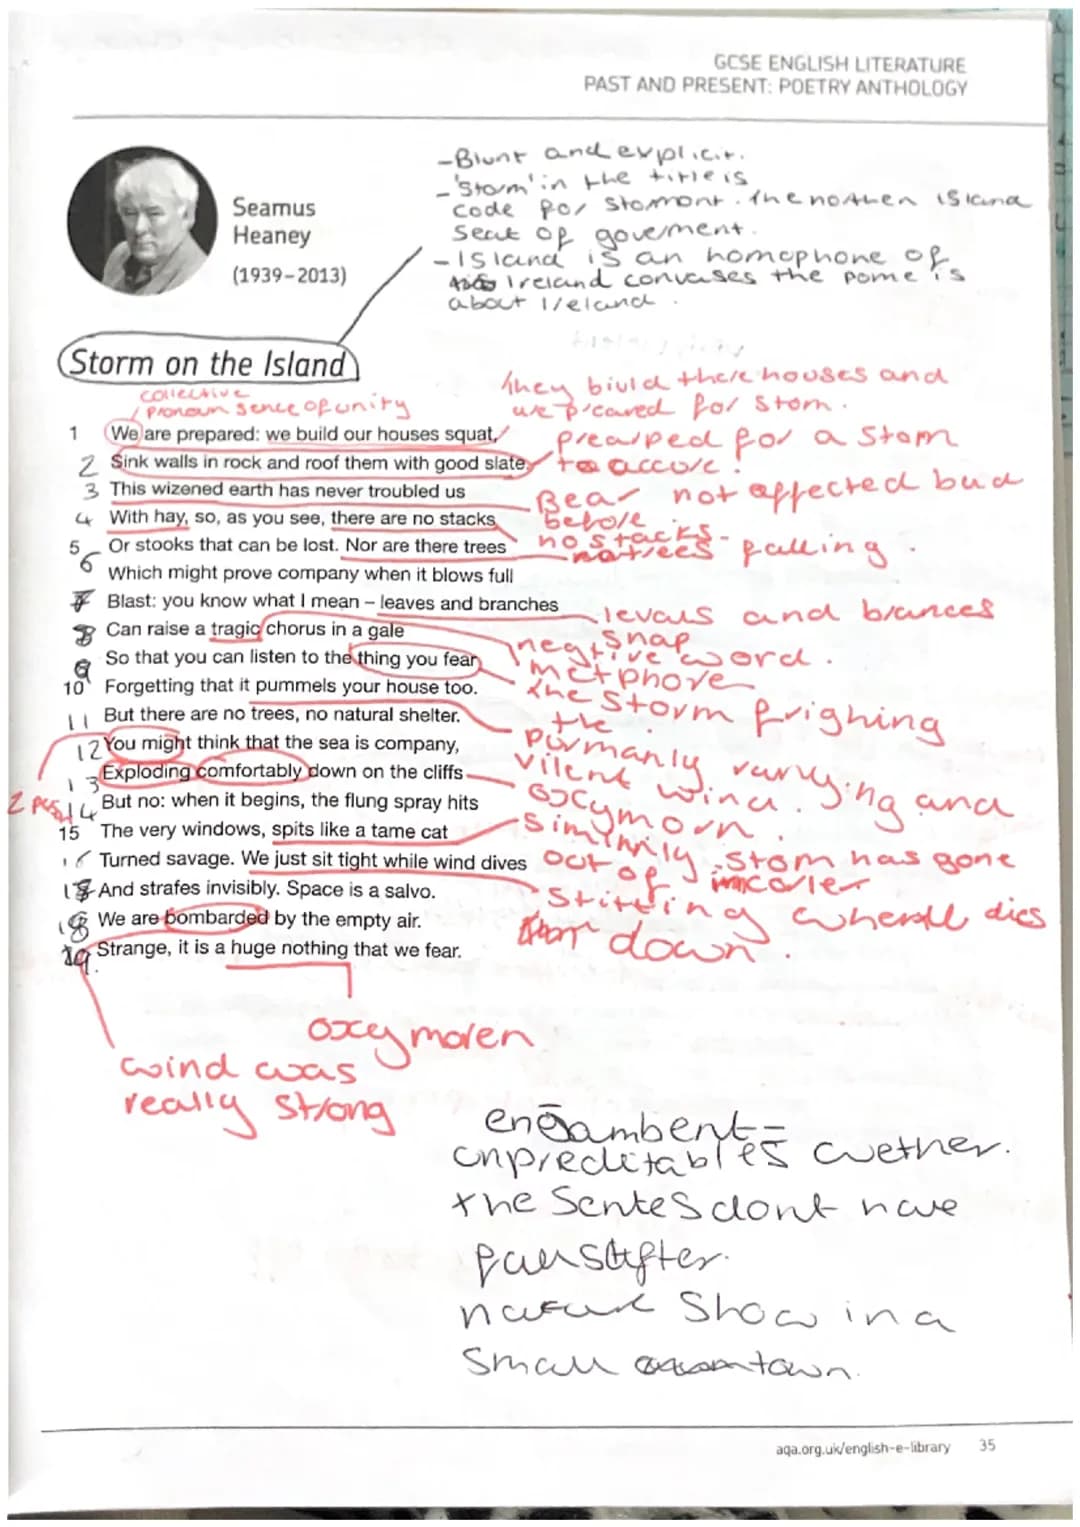 GCSE ENGLISH LITERATURE
PAST AND PRESENT: POETRY ANTHOLOGY
-Blunt and explicit.
- 'Storm' in the title is
code for Stormont. the northen island
Seat of goverment.
- Island is an homophone of
Ireland convases the pome is
about Ireland.
Seamus
Heaney
(1939–2013)
Storm on the Island
collective
pronoun sence of unity
they biuld there houses and
prepared for storm.
1 We are prepared: we build our houses squat,
prearped for a storm
2 Sink walls in rock and roof them with good slate.
to accure.
3 This wizened earth has never troubled us
Bear not affected bud
before
4 With hay, so, as you see, there are no stacks
no stacks -
no trees falling.
5 Or stooks that can be lost. Nor are there trees
6 Which might prove company when it blows full
7 Blast: you know what I mean – leaves and branches
levals and brances
snap
8 Can raise a tragic chorus in a gale
negtive word.
9 So that you can listen to the thing you fear
metphore
10 Forgetting that it pummels your house too.
the storm frighing
the
11 But there are no trees, no natural shelter.
12 You might think that the sea is company,
purmanly varrying and
vilent wind.
13 Exploding comfortably down on the cliffs
oxcymorn.
14 But no: when it begins, the flung spray hits
15 The very windows, spits like a tame cat
simimly - Stom has gone
out of
16 Turned savage. We just sit tight while wind dives
17 And strafes invisibly. Space is a salvo.
- Stitting dies
down.
18 We are bombarded by the empty air.
19 Strange, it is a huge nothing that we fear.
oxcymoren
wind was
really strong
enjambent -
unpreditables wether.
the Sentes dont have
Show in a
Small town.
aqa.org.uk/english-e-library 35